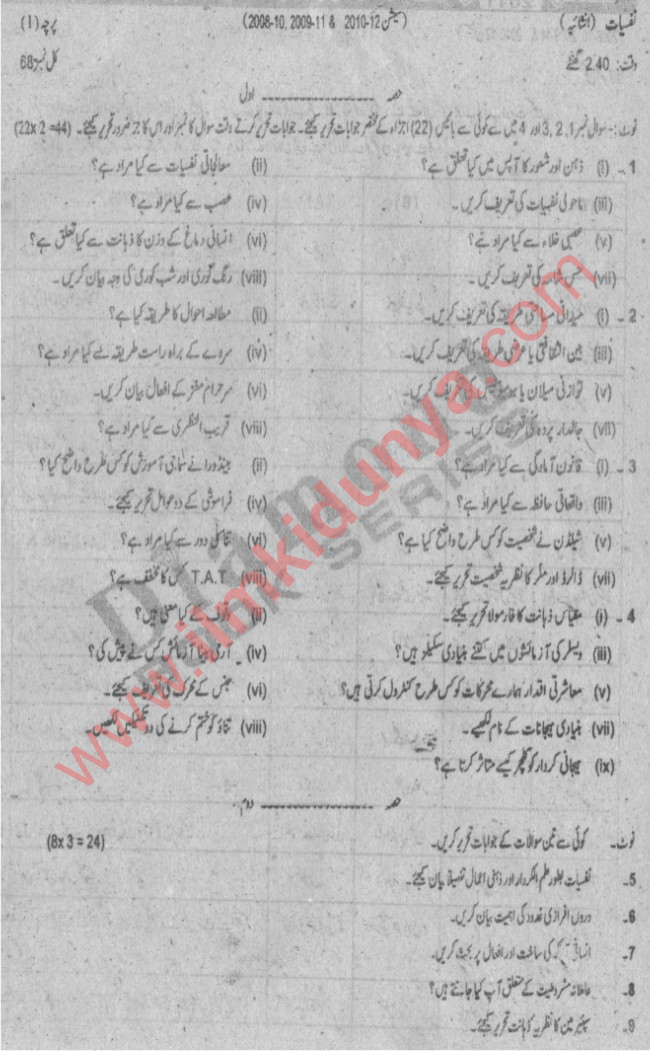 نفسیات (انشائیہ) (سیشن 2010-12 & 2009-11 ,2008-10) پرچہ (I)
وقت: 2.40 گھنٹے کل نمبر 68
حصہ ---------------- اول
نوٹ:- سوال نمبر 1، 2، 3 اور 4 میں سے کوئی سے بائیس (22) اجزاء کے مختصر جوابات تحریر کیجئے۔ جوابات تحریر کرتے وقت سوال کا نمبر اور اس کا جز ضرور تحریر کیجئے۔ (22x 2 =44)
1۔ (i) ذہن اور شعور کا آپس میں کیا تعلق ہے؟ (ii) معالجاتی نفسیات سے کیا مراد ہے؟
(iii) ماحولی نفسیات کی تعریف کریں۔ (iv) عصب سے کیا مراد ہے؟
(v) عصبی خلاء سے کیا مراد ہے؟ (vi) انسانی دماغ کے وزن کا ذہانت سے کیا تعلق ہے؟
(vii) حس شامہ کی تعریف کریں۔ (viii) رنگ کوری اور شب کوری کی وجہ بیان کریں۔
2۔ (i) میدانی مساحتی طریقہ کی تعریف کریں۔ (ii) مطالعہ احوال کا طریقہ کیا ہے؟
(iii) بین الثقافتی یا عرضی طریقہ کی تعریف کریں۔ (iv) سروے کے براہ راست طریقہ سے کیا مراد ہے؟
(v) توازنی میلان یا ہومیوسٹیسس کی تعریف کریں۔ (vi) سرحرام مغز کے افعال بیان کریں۔
(vii) جالدار پردہ کی تعریف کریں۔ (viii) قریب النظری سے کیا مراد ہے؟
3۔ (i) قانون آمادگی سے کیا مراد ہے؟ (ii) بینڈورا نے سماجی آموزش کو کس طرح واضح کیا؟
(iii) واقعاتی حافظہ سے کیا مراد ہے؟ (iv) فراموشی کے دو عوامل تحریر کیجئے۔
(v) شیلڈن نے شخصیت کو کس طرح واضح کیا ہے؟ (vi) تناسلی دور سے کیا مراد ہے؟
(vii) ڈالرڈ اور ملر کا نظریہ شخصیت تحریر کیجئے۔ (viii) T.A.T کس کا مخفف ہے؟
4۔ (i) مقیاس ذہانت کا فارمولا تحریر کیجئے۔ (ii) وقوف کے کیا معنی ہیں؟
(iii) ویسلر کی آزمائشوں میں کتنے بنیادی سکیلو ہیں؟ (iv) آرمی بیٹا آزمائش کس نے پیش کی؟
(v) معاشرتی اقدار ہمارے محرکات کو کس طرح کنٹرول کرتی ہیں؟ (vi) جنس کے محرک کی تعریف کیجئے۔
(vii) بنیادی ہیجانات کے نام لکھیے۔ (viii) تناؤ کو ختم کرنے کی دو تکنیکیں لکھیں۔
(ix) ہیجانی کردار کو کلچر کیسے متاثر کرتا ہے؟
حصہ ---------------- دوم
نوٹ۔ کوئی سے تین سوالات کے جوابات تحریر کریں۔ (8x 3 = 24)
5۔ نفسیات بطور علم الکردار اور ذہنی اعمال تفصیلاً بیان کیجئے۔
6۔ دروں افرازی غدود کی اہمیت بیان کریں۔
7۔ انسانی کی ساخت اور افعال پر بحث کریں۔
8۔ عاملانہ مشروطیت کے متعلق آپ کیا جانتے ہیں؟
9۔ سپئیر مین کا نظریہ ذہانت تحریر کیجئے۔
www.ilmkidunya.com
Diamond
SERIES